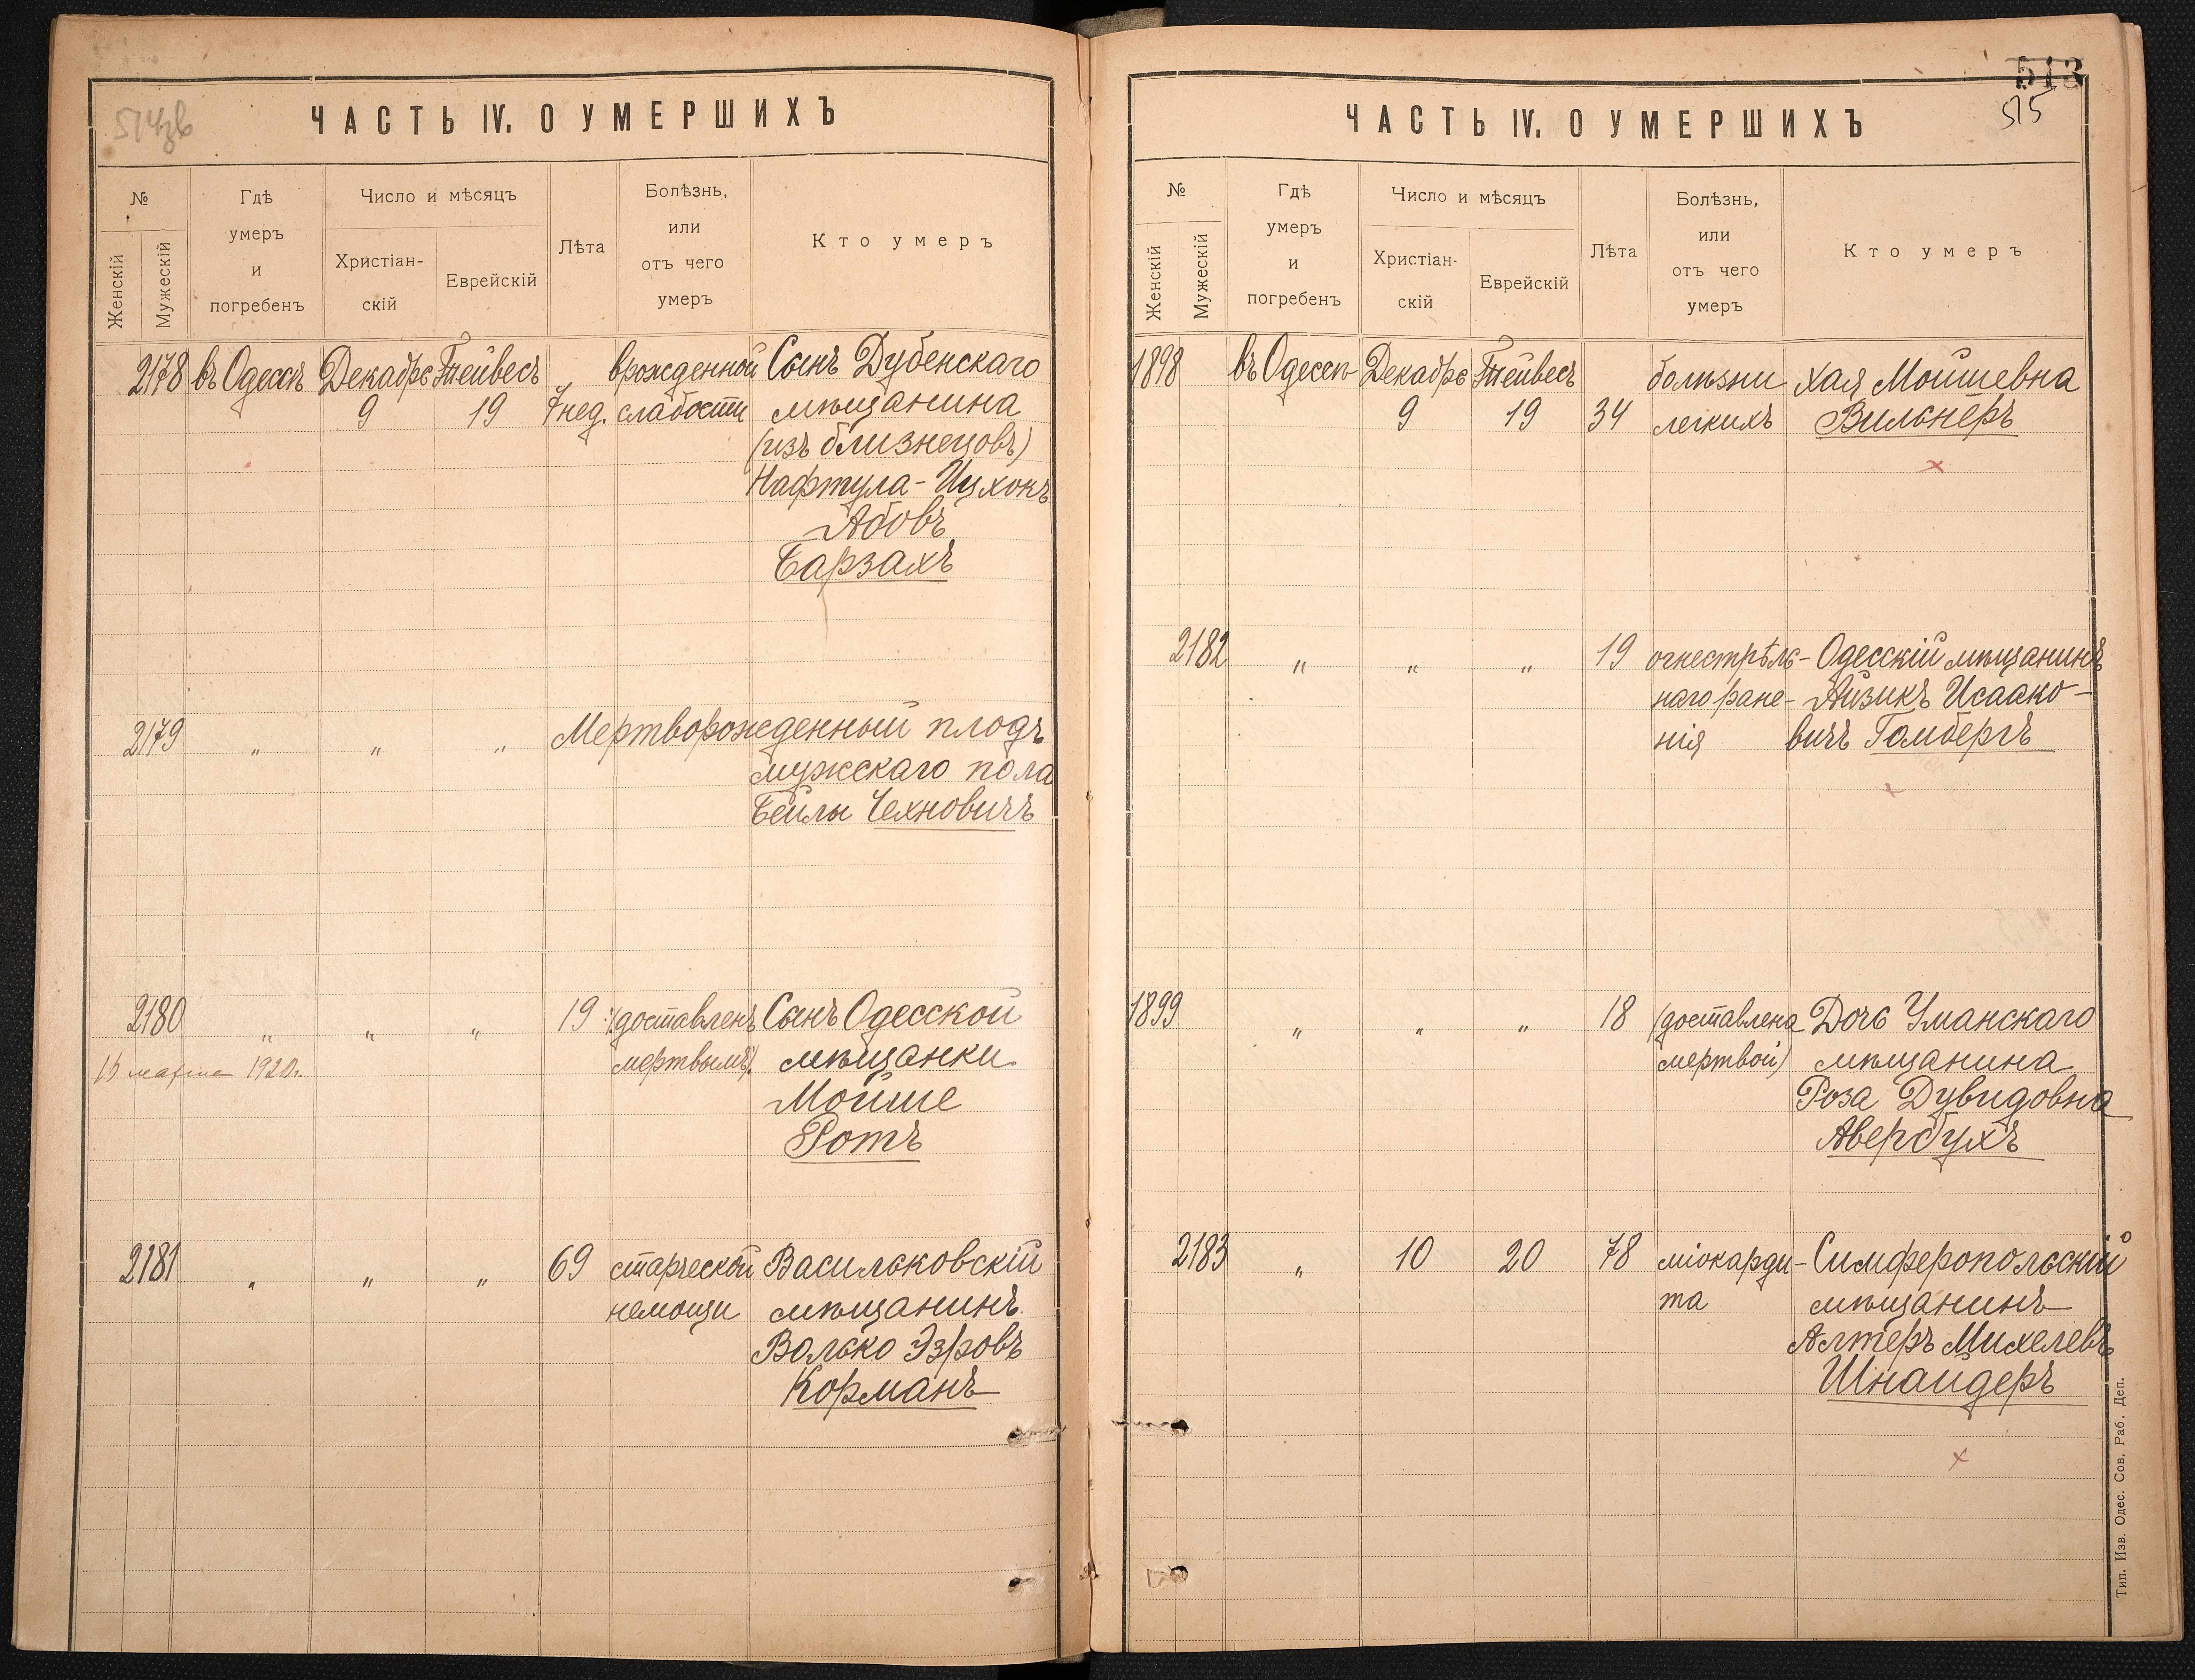 ЧАСТЬ IV. О УМЕРШИХЪ
№
Женскій
Мужескій
Гдѣ
умеръ
и
погребенъ
Число и мѣсяцъ
Христіан-
скій
Еврейскій
Лѣта
Болѣзнь,
или
отъ чего
умеръ
Кто умеръ
2178 въ Одессѣ Декабрь Тейвесъ врожденной Сынъ Дубенскаго
9 19 7 нед. слабости мѣщанина
(изъ близнецовъ)
Нафтула-Ицхокъ
Абовъ
Барзахъ
2179 „ „ „ Мертворожденный плодъ
мужскаго пола
Бейлы Чехновичъ
2180 „ „ „ 19 (доставленъ Сынъ Одесской
15 марта 1920г. мертвымъ). мѣщанки
Мойше
Ротъ
2181 „ „ „ 69 старческой Васильковскій
немощи мѣщанинъ
Волько Эзровъ
Корманъ
513
515
ЧАСТЬ IV. О УМЕРШИХЪ
№
Женскій
Мужескій
Гдѣ
умеръ
и
погребенъ
Число и мѣсяцъ
Христіан-
скій
Еврейскій
Лѣта
Болѣзнь,
или
отъ чего
умеръ
Кто умеръ
1898 въ Одессѣ Декабрь Тейвесъ болѣзни Хая Мошевна
9 19 34 легкихъ Вильнеръ
2182 „ „ „ 19 огнестрѣль- Одесскій мѣщанинъ
наго ране- Айзикъ Исаако-
нія вичъ Гомбергъ
1899 „ „ „ 18 (доставлена Дочь Уманскаго
мертвой) мѣщанина
Роза Дувидовна
Авербухъ
2183 „ 10 20 78 міокарди- Симферопольскій
та мѣщанинъ
Алтеръ Михелевъ
Шнайдеръ
Тип. Изв. Одес. Сов. Раб. Деп.